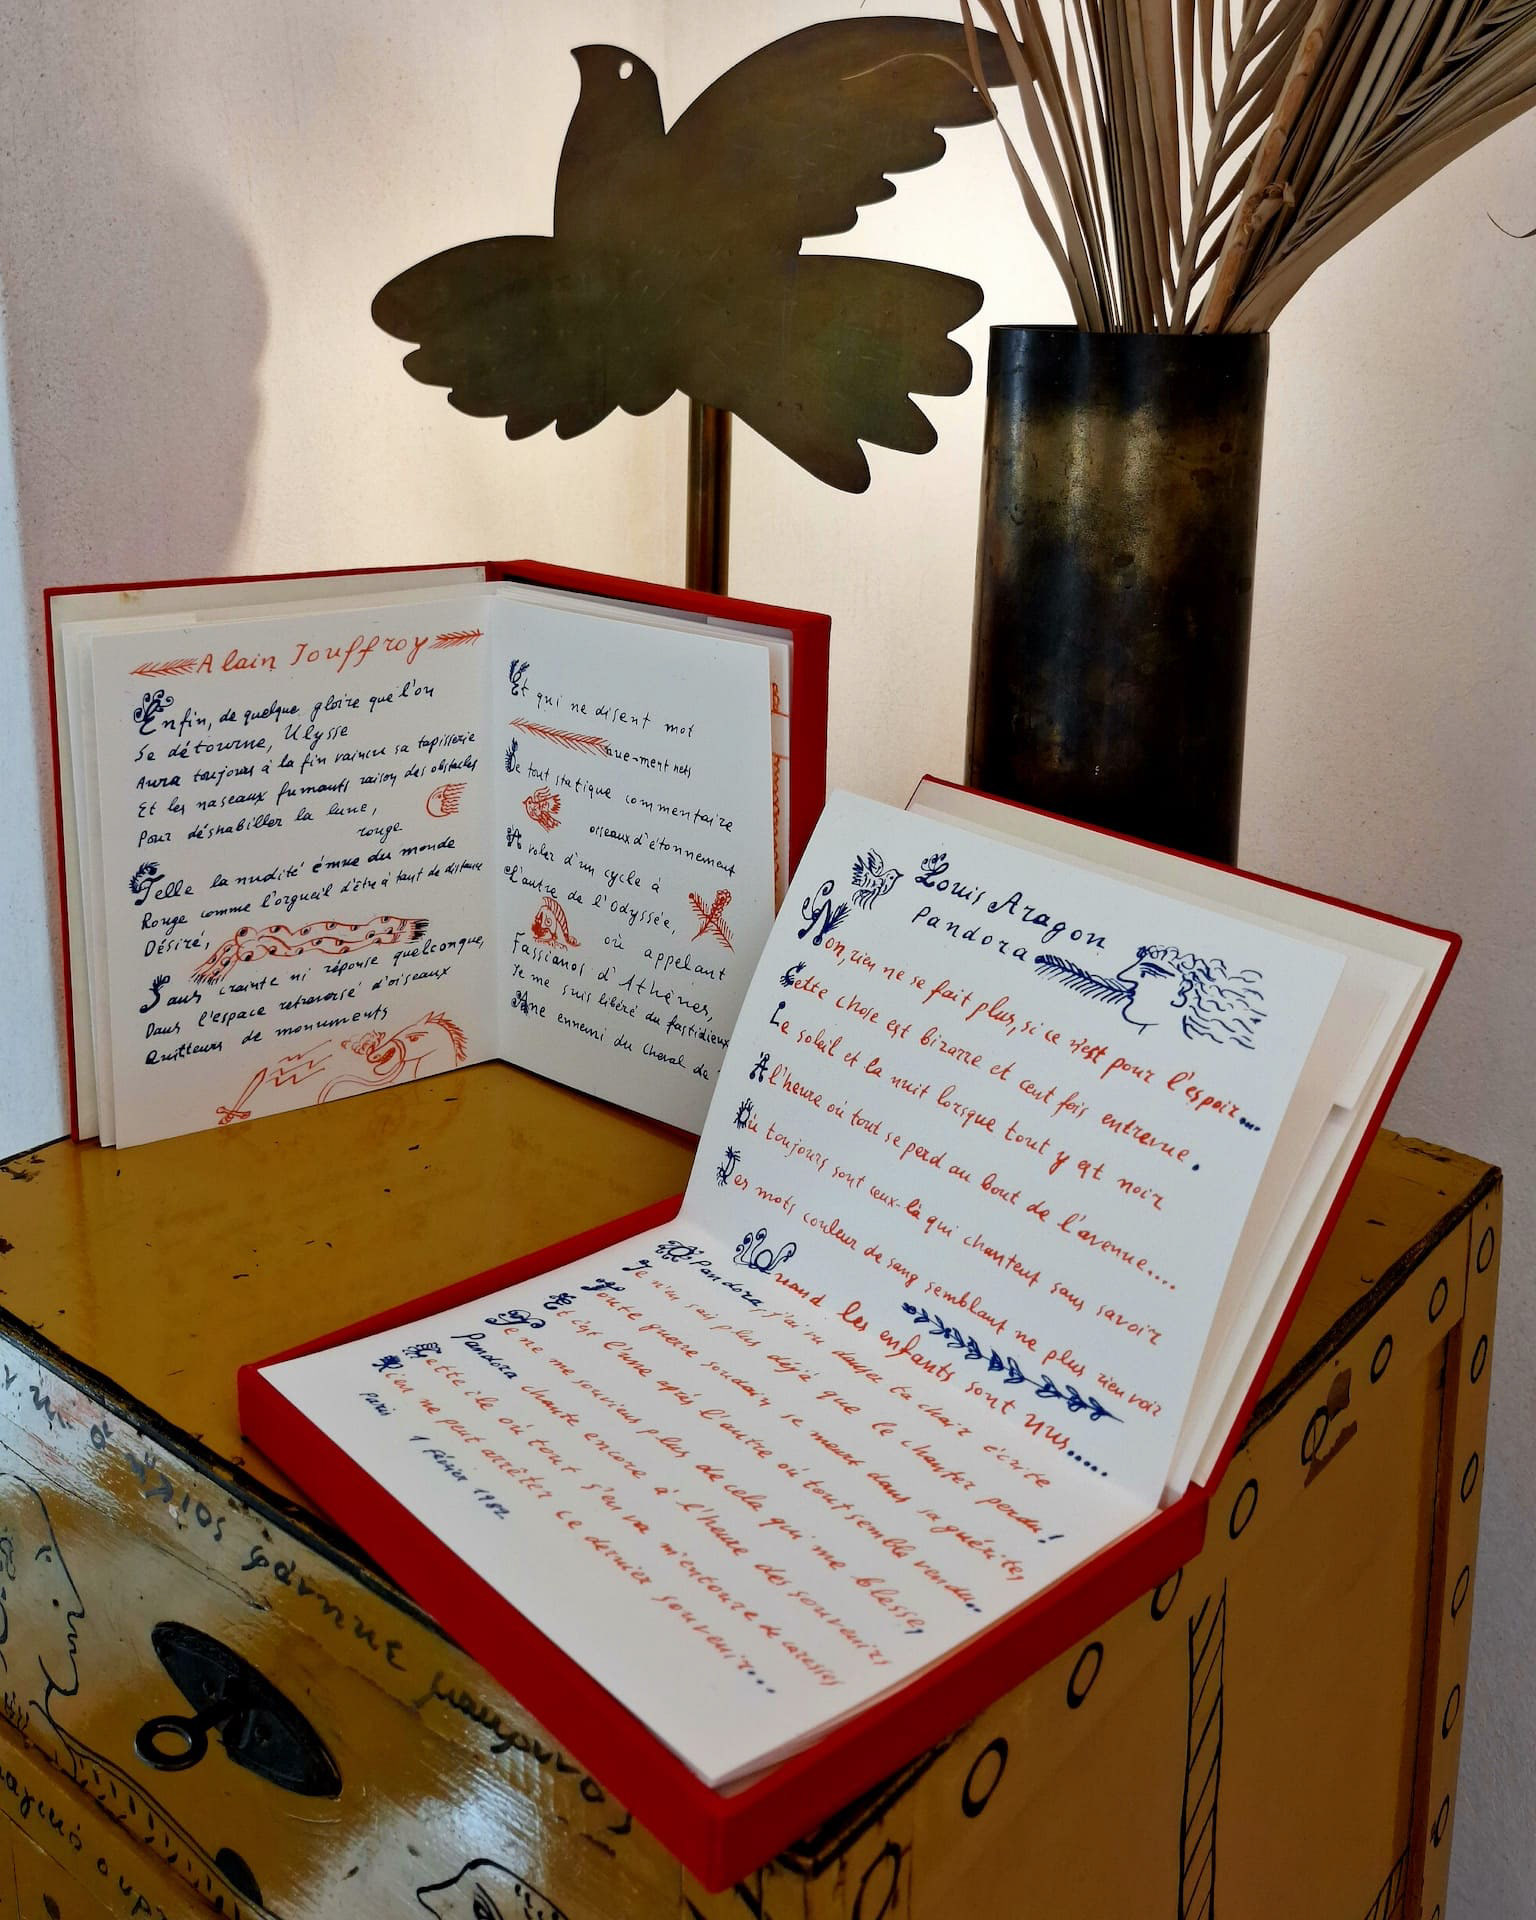 Alain Jouffroy
Enfin, de quelque gloire que l'on
Se détourne, Ulysse
Aura toujours à la fin vaincu sa tapisserie
Et les naseaux fumants raison des obstacles
Pour déshabiller la lune,
rouge
Telle la nudité émue du monde
Rouge comme l'orgueil d'être à tant de distance
Désiré,
Sans crainte ni réponse quelconque,
Dans l'espace retraversé d'oiseaux
Quitteurs de monuments
Et qui ne disent mot
que-ment nets
De tout statique commentaire
oiseaux d'étonnement
A voler d'un cycle à
L'autre de l'Odyssée,
où appelant
Fassianos d'Athènes,
Je me suis libéré du fastidieux
Ane ennemi du cheval de
Louis Aragon
Pandora
Non, rien ne se fait plus, si ce n'est pour l'espoir...
Cette chose est bizarre et cent fois entrevue.
Le soleil et la nuit lorsque tout y est noir
A l'heure où tout se perd au bout de l'avenue....
Où toujours sont ceux-là qui chantent sans savoir
Les mots couleur de sang semblant ne plus rien voir
Quand les enfants sont nus.....
Pandora, j'ai vu danser ta chair écrite
Je n'en sais plus déjà que le chanter perdu!
Toute guerre soudain se meurt dans sa guérite,
Et c'est l'une après l'autre où tout semble vendu..
Je ne me souviens plus de cela qui me blesse,
Pandora chante encore à l'heure des souvenirs
Cette île où tout s'en va m'entoure de caresses
Rien ne peut arrêter ce dernier souvenir...
Paris 1 Février 1982